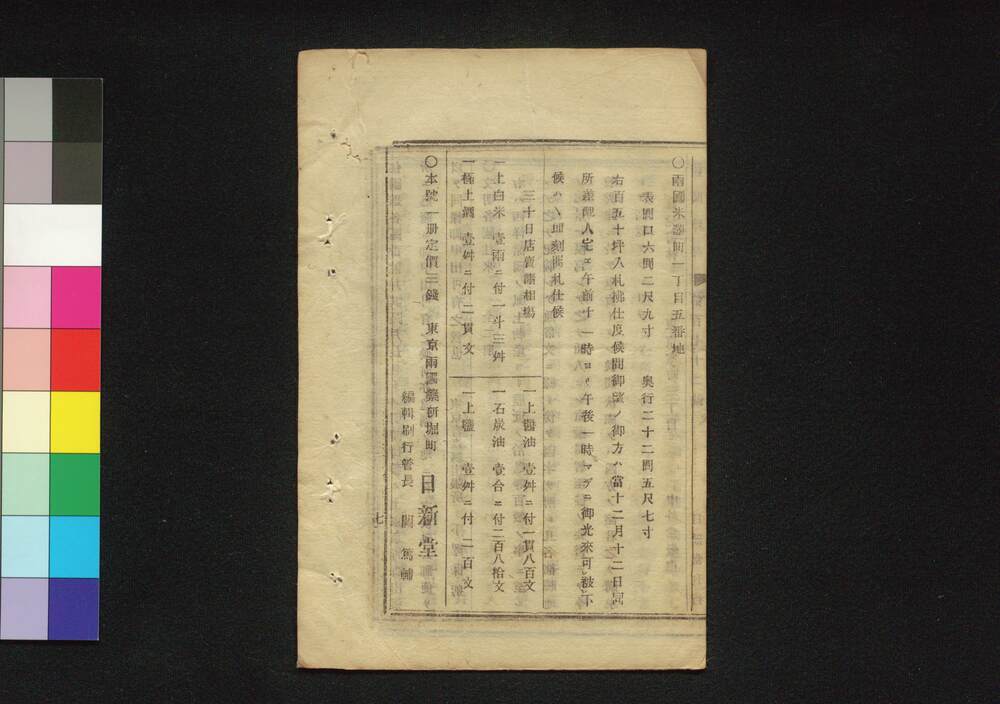 〇兩國米澤町一丁目五番地
表間口六間二尺九寸　奥行二十二間五尺七寸
右百五十坪入札拂仕度候間御望ノ御方ハ當十二月十二日同
所差配人定ニ午前十一時ヨリ午後一時マデニ御光來可被下
候ハヽ即刻開札仕候
三十日店賣諸相場
一上白米　壹兩ニ付一斗三舛
一極上酒　壹舛ニ付二貫文
一上醤油　壹舛ニ付一貫八百文
一石炭油　壹合ニ付二百八拾文
一上鹽　壹舛ニ付二百文
〇本號一册定價三錢　東京兩國藥研堀町　日新堂
編輯刷行管長　関　篤輔
七